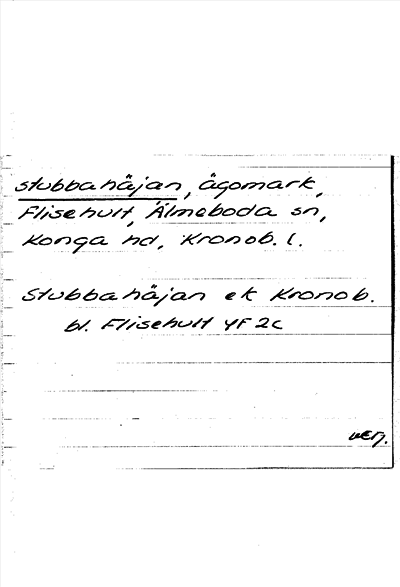 stubbahäjan, ägomark,
Flisehult, Älmeboda sn,
Konga hd, Kronob. l.
Stubbahäjan ek Kronob.
bl. Flisehult 4F 2c